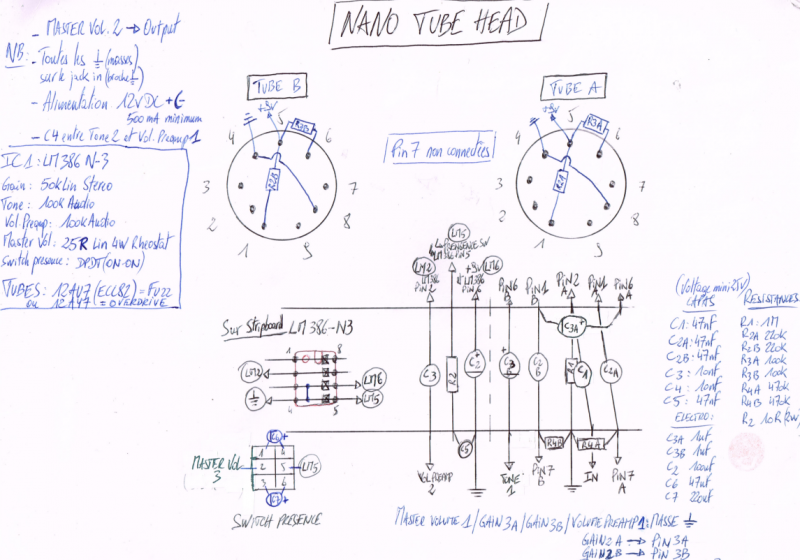 NANO TUBE HEAD
- MASTER VOL. 2 → Output
NB: - Toutes les ⏚ (masses)
sur le jack in (broche ⏚)
- Alimentation 12VDC +
500 mA minimum
- C4 entre Tone 2 et Vol. Preamp 1
IC1 : LM386 N-3
Gain : 50k Lin Stereo
Tone : 100k Audio
Vol Preamp : 100k Audio
Master Vol : 25R Lin 4W Rheostat
Switch presence : DPDT (ON-ON)
TUBES : 12AU7 (ECC82) = FUZZ
ou 12AY7 = OVERDRIVE
TUBE B
+9V
R3B
R2A
1
2
3
4
5
6
7
8
9
Pin 7 non connectées
TUBE A
+9V
R3A
R2A
1
2
3
4
5
6
7
8
9
Sur Stripboard LM386-N3
1
8
4
5
LM2
LM6
LM5
LM2
LM386
PIN 2
LM5
PRESENCE SW
LM386 PIN 5
+9V
LM6
LM386
PIN 6
PIN 6
B
PIN 1
B
PIN 2
A
PIN 1
A
PIN 6
A
C3A
C3
R2
C2
C3B
C2B
C1
C2A
C5
R4B
R4A
VOL PREAMP
2
TONE
1
PIN 7
B
IN
PIN 7
A
C6
1
4
2
5
3
6
C7
MASTER VOL
3
LM5
SWITCH PRESENCE
MASTER VOLUME 1 / GAIN 3A / GAIN 3B / VOLUME PREAMP 1 : MASSE ⏚
GAIN 2A → PIN 3A
GAIN 2B → PIN 3B
(Voltage mini 25V)
CAPAS
C1 : 47nf
C2A : 47nf
C2B : 47nf
C3 : 10nf
C4 : 10nf
C5 : 47nf
ELECTRO :
C3A 1uf
C3B 1uf
C2 100uf
C6 47uf
C7 220uf
RESISTANCES
R1 : 1M
R2A 220k
R2B 220k
R3A 100k
R3B 100k
R4A 470k
R4B 470k
R2 10R (2W)